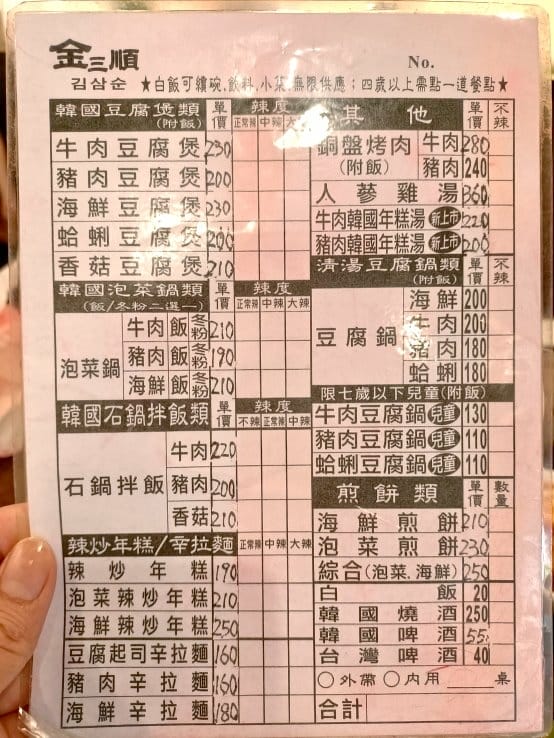 金三順
김삼순
No.
★白飯可續碗,飲料,小菜,無限供應;四歲以上需點一道餐點★
韓國豆腐煲類(附飯) 單價 辣度 正常辣 中辣 大辣
牛肉豆腐煲 230
豬肉豆腐煲 200
海鮮豆腐煲 230
蛤蜊豆腐煲 200
香菇豆腐煲 210
韓國泡菜鍋類(飯/冬粉二選一) 單價 辣度 正常辣 中辣 大辣
泡菜鍋
牛肉 飯 冬粉 210
豬肉 飯 冬粉 190
海鮮 飯 冬粉 210
韓國石鍋拌飯類 單價 辣度 不辣 正常辣 中辣
石鍋拌飯
牛肉 220
豬肉 200
香菇 210
辣炒年糕/辛拉麵 正常辣 中辣 大辣
辣炒年糕 190
泡菜辣炒年糕 210
海鮮辣炒年糕 250
豆腐起司辛拉麵 160
豬肉辛拉麵 160
海鮮辛拉麵 180
其他 單價 不辣
銅盤烤肉(附飯)
牛肉 280
豬肉 240
人蔘雞湯 360
牛肉韓國年糕湯 新上市 220
豬肉韓國年糕湯 新上市 200
清湯豆腐鍋類(附飯) 單價 不辣
豆腐鍋
海鮮 200
牛肉 200
豬肉 180
蛤蜊 180
限七歲以下兒童(附飯)
牛肉豆腐鍋 兒童 130
豬肉豆腐鍋 兒童 110
蛤蜊豆腐鍋 兒童 110
煎餅類 單價 數量
海鮮煎餅 210
泡菜煎餅 230
綜合(泡菜.海鮮) 250
白飯 20
韓國燒酒 250
韓國啤酒 55
台灣啤酒 40
○外帶 ○內用 ____桌
合計